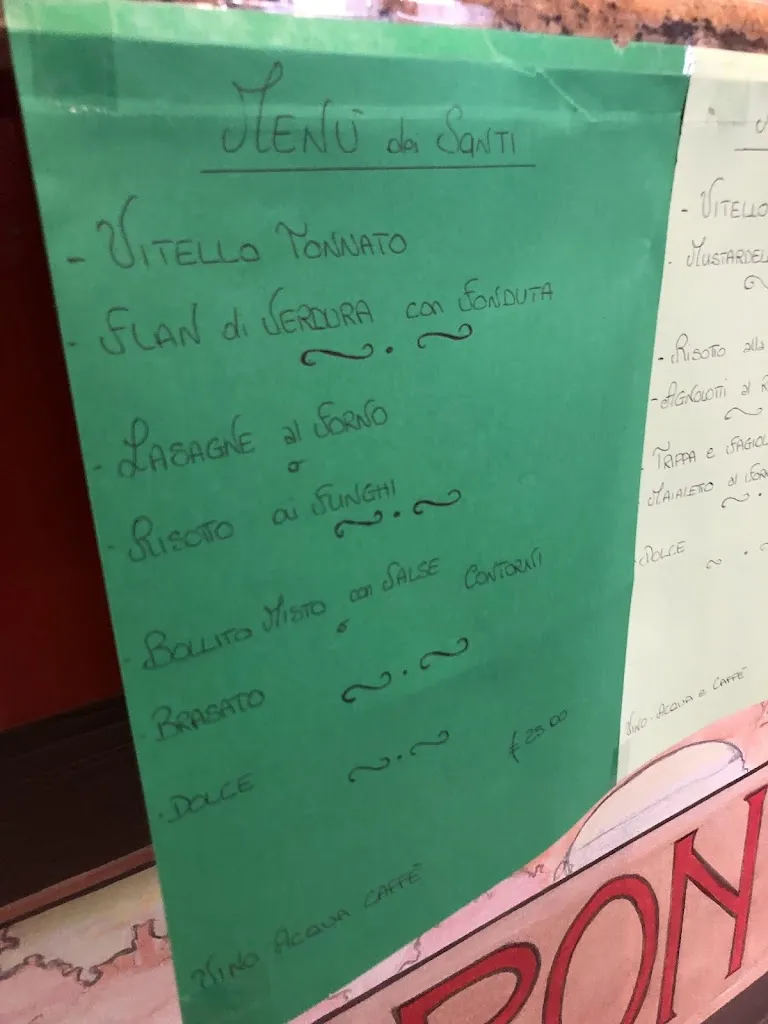 MENÙ dei SANTI
- VITELLO TONNATO
- FLAN di VERDURA con FONDUTA
- LASAGNE al FORNO
o
- RISOTTO ai FUNGHI
- BOLLITO MISTO con SALSE CONTORNI
o
- BRASATO
- DOLCE
€ 25.00
VINO ACQUA CAFFÈ
- VITELLO
- 
- RISOTTO alla
- AGNOLOTTI al
- TRIPPA e
- MAIALETTO al
- DOLCE
VINO - ACQUA e CAFFÈ
RON